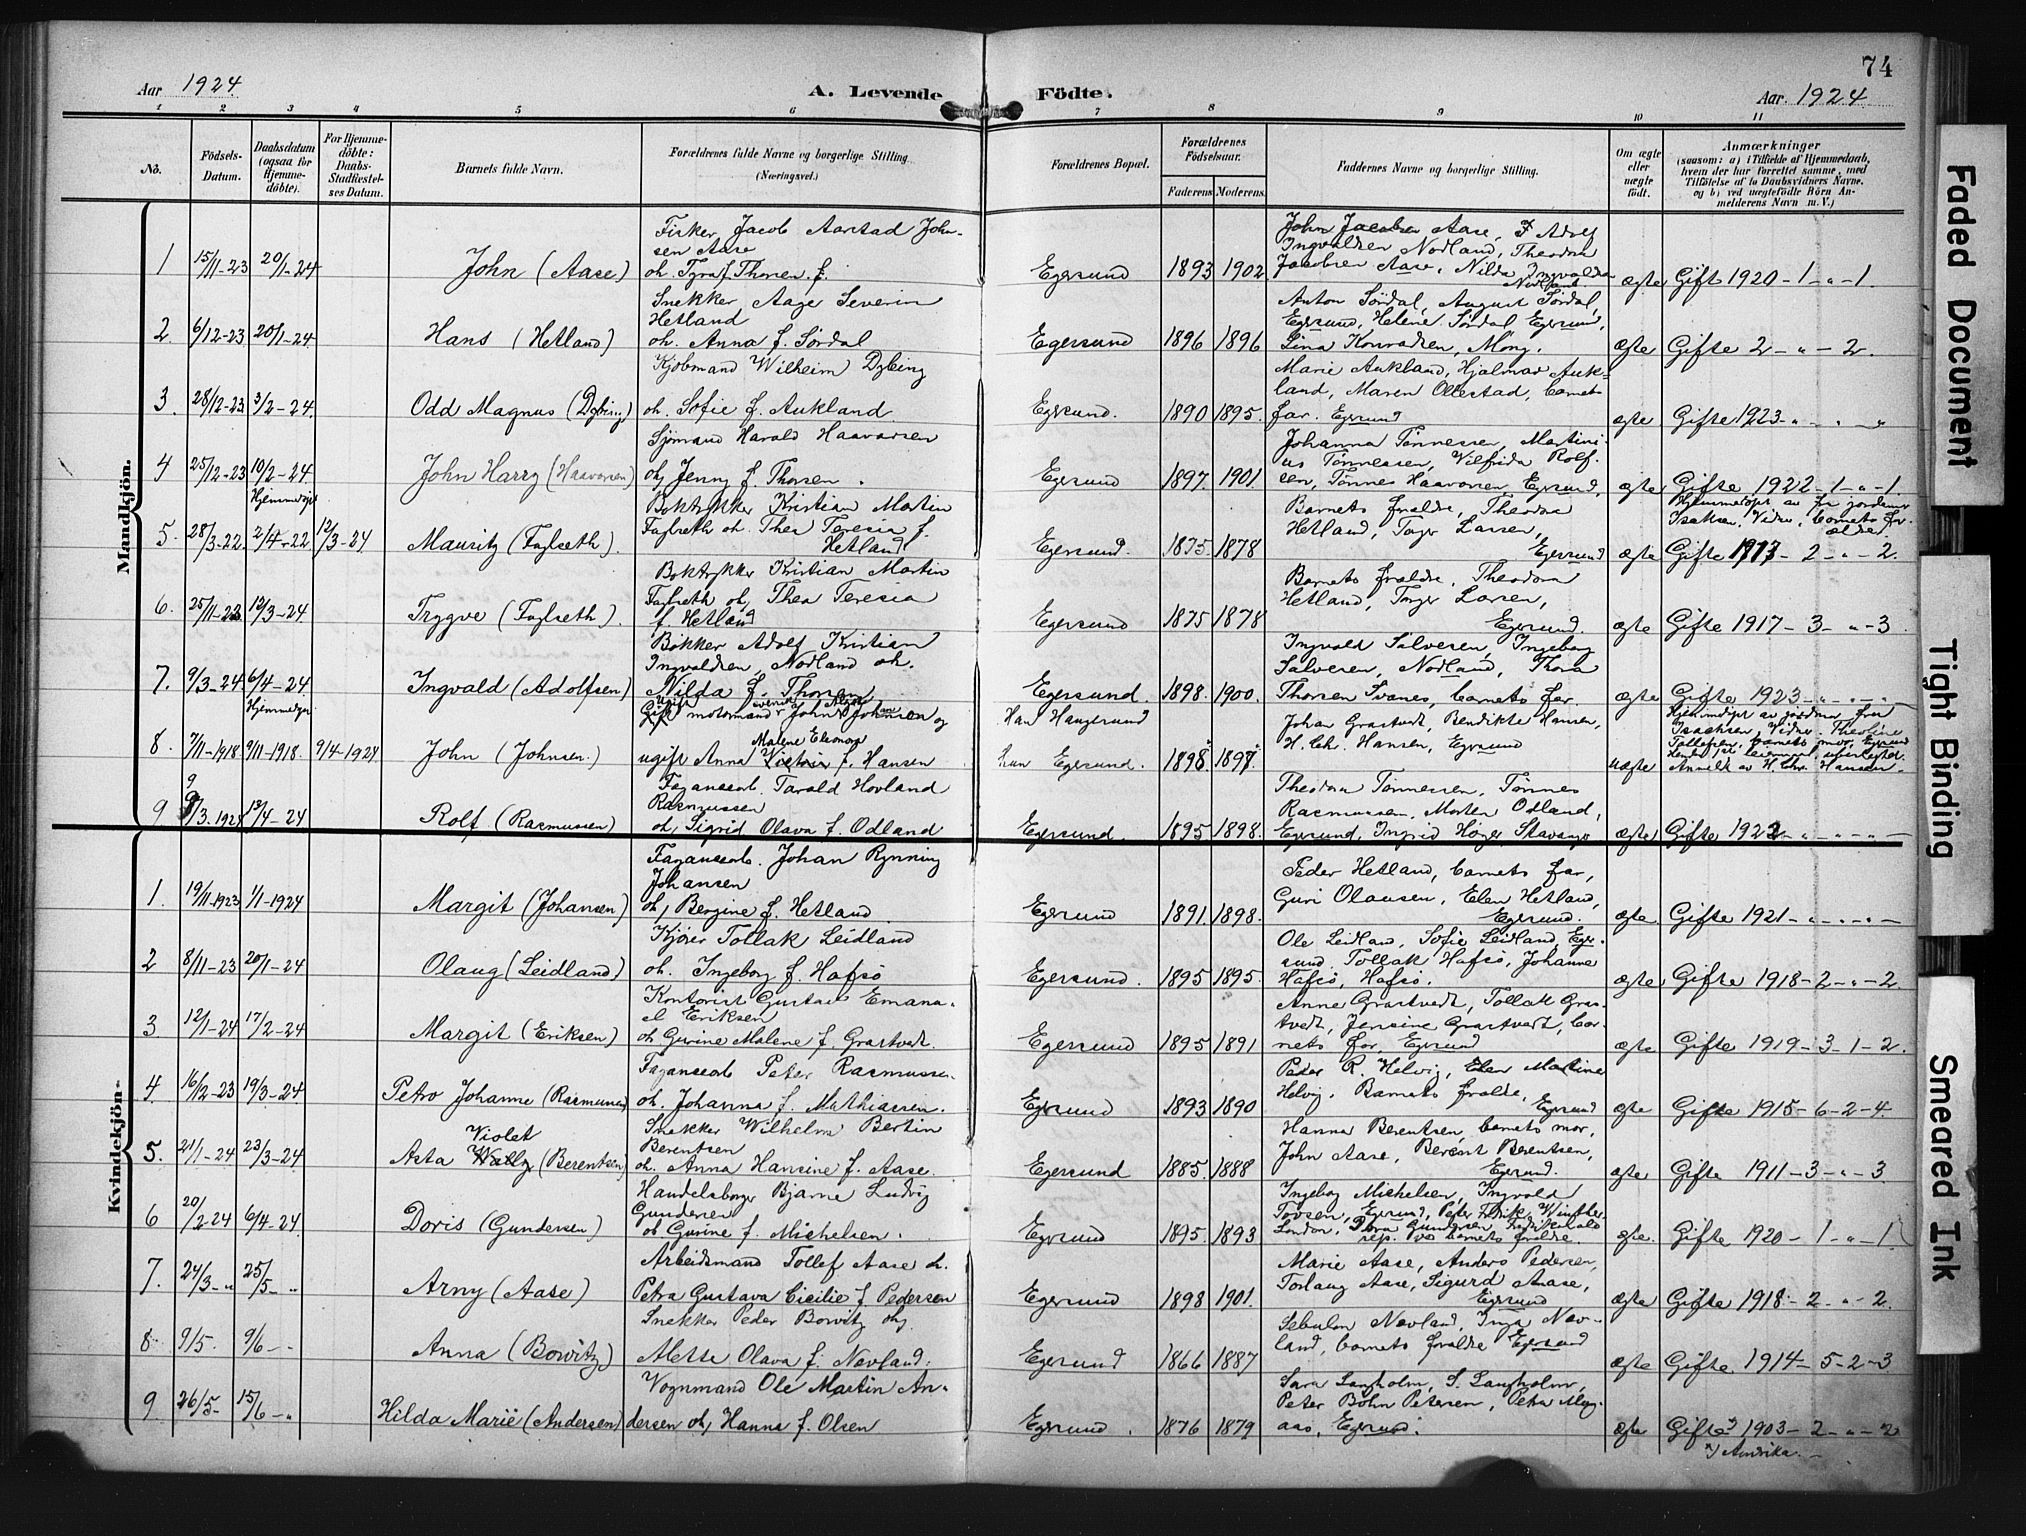 74
Aar 1924
A. Levende Födte.
Aar. 1924
1 2 3 4 5 6 7 8 9 10 11
No.
Födsels-Datum.
Daabsdatum (ogsaa for Hjemmedöbte).
For Hjemmedöbte: Daabs-Stadfæstelses Datum.
Barnets fulde Navn.
Forældrenes fulde Navne og borgerlige Stilling. (Næringsvei.)
Forældrenes Bopæl.
Forældrenes Födselsaar.
Faderens Moderens.
Faddernes Navne og borgerlige Stilling.
Om ægte eller uægte födt.
Anmærkninger
(saasom: a) i Tilfælde af Hjemmedaab, hvem der har forrettet samme, med Tilföielse af to Daabsvidners Navne, og b) ved uægtefödte Börn Anmelderens Navn m. V.)
Mandkjön.
1 15/11-23 20/1-24 John (Aase)
Fisker Jacob Aarstad John-
sen Aase
oh. Thorsen
Egersund 1893 1902
John Jacobsen Aase, Adolf
Ingvaldsen Nodland, Theodora
Jacobsen Aase, Nilda Ingvaldsen
Nodland
ægte Gifte 1920-1-"-1.
2. 6/12-23 20/1-24 Hans (Hetland)
Snekker Aage Severin
Hetland
oh. Anna f. Sørdal
Egersund 1896 1896
Anton Sørdal, August Sørdal,
Egersund, Helene Sørdal Egersund,
Lina Konradsen, Mong.
ægte Gifte 2-"-2.
3. 28/12-23 3/2-24. Odd Magnus (Dybing)
Kjøbmand Wilhelm Dybing
oh. Sofie f. Aukland
Egersund. 1890 1895.
Marie Aukland, Hjalmar Auk-
land, Maren Ollestad, barnets
far. Egersund
ægte Gifte 1923-"-"-"
4 25/12-23 10/2-24 John Harry (Haavorsen)
Sjømand Harald Haavorsen
oh Jenny f. Thorsen.
Egersund 1897. 1901.
Johanna Tønnessen, Martini-
us Tønnessen, Wilfrida Rolf-
sen, Tønnes Haavorsen Egersund,
ægte Gifte 1922-1-"-1.
5. 28/3-22. Hjemmedøpt 2/4-22 12/3-24 Mauritz (Faglseth).
Boktrykker Kristian Martin
Faglseth oh. Thea Teresia f.
Hetland
Egersund. 1875 1878
Barnets forældre, Theodora
Hetland, Inger Larsen,
Egersund
Hjemmedøpt av fru jordemor
Isaksen, Vidner, barnets for-
ældre.
ægte Gifte 1917-2-"-2.
6. 25/11-23 12/3-24 Trygve (Faglseth).
Boktrykker Kristian Martin
Faglseth oh. Thea Teresia
f. Hetland
Egersund 1875 1878
Barnets forældre, Theodora
Hetland, Inger Larsen,
Egersund.
ægte Gifte 1917-3-"-3.
7. 9/3-24 6/4-24 Ingvald (Adolfsen)
Bøkker Adolf Kristian
Ingvaldsen, Nodland oh.
Nilda f. Thorsen
Egersund. 1898. 1900.
Ingvald Salvesen, Ingeborg
Salvesen, Nodland, Thora
Thorsen Svanes, barnets far.
ægte Gifte 1923-"-"-"
8. 7/11-1918 Hjemmedøpt 9/11-1918. 9/4-1924 John (Johnsen.)
Ugift motormand John Johansen og
Malene Eleonora
ugift Anna f. Hansen
Han Haugesund
hun Egersund. 1898. 1897.
Johan Grastvedt, Bendikte Hansen,
H. Chr. Hansen, Egersund
uægte
Hjemmedøpt av jordmor fru
Isachsen, Vidner Theoline
Tollefsen, barnets mor, Egersund
Anmeldt av H. Chr. Hansen.
9 9/3.1924 13/4-24 Rolf (Rasmussen)
Fajansearb. Tarald Hovland
Rasmussen
oh. Sigrid Olava f. Odland
Egersund. 1895 1898.
Theodora Tønnessen, Tønnes
Rasmussen, Morten Odland,
Egersund, Ingrid Høyer Stavanger
ægte Gifte 1922-"-"-"
Kvindekjön.
1. 19/11-1923 1/1-1924 Margit (Johansen)
Fajansearb. Johan Rynning
Johansen
oh, Bergine f. Hetland.
Egersund 1891. 1898.
Peder Hetland, barnets far,
Guri Olausen, Elen Hetland,
Egersund.
ægte. Gifte 1921-"-"-"
2 8/11-23 20/1-24 Olaug (Leidland)
Kjører Tollak Leidland
oh. Ingeborg f. Hafsø
Egersund. 1895 1895.
Ole Leidland, Sofie Leidland, Eger-
sund. Tollak Hafsø, Johanne
Hafsø, Hafsø.
ægte Gifte 1918-2-"-2
3 12/1-24 17/2-24 Margit (Eriksen)
Kontorist Gustav Emanu-
el Eriksen
oh Gurine Malene f. Grastvedt.
Egersund 1895 1891
Anne Grastvedt, Tollak Gras-
tvedt, Jensine Grastvedt, bar-
nets far, Egersund
ægte Gifte 1919-3-1-2.
4. 16/12-23 19/3-24 Petro Johanne (Rasmussen)
Fajansearb Peter Rasmussen
oh. Johanna f. Mathiassen.
Egersund 1893 1890
Peder R. Helvig, Elen Martine
Helvig. Barnets forældre,
Egersund
ægte Gifte 1915-6-2-4
5. 21/1-24 23/3-24 Asta Violet Wally (Berentsen)
Snekker Wilhelm Bertin
Berentsen
oh. Anna Hansine f. Aase.
Egersund 1885 1888
Hanna Berentsen, barnets mor,
John Aase, Berent Berentsen,
Egersund.
ægte Gifte 1911-3-"-3
6 20/2-24 6/4-24. Doris (Gundersen)
Handelsborger Bjarne Ludvig
Gundersen
oh Gurine f. Michelsen.
Egersund 1895. 1893
Ingeborg Michelsen, Ingvald
Tovsen, Egersund, Peter Fredrik Winther
London, Gundersen, Fredrikshald
rep. ved barnets forældre.
ægte. Gifte 1920-1-"-1.
7. 24/3-" 25/5-" Arny (Aase)
Arbeidsmand Tollef Aase oh.
Petra Gustava Cicilie f. Pedersen
Egersund 1898 1901.
Marie Aase, Anders Pedersen,
Torlaug Aase, Sigurd Aase,
Egersund
ægte Gifte 1918-2-"-2.
8. 9/5. 9/6-" Anna (Bowitz)
Snekker Peder Bowitz oh,
Alette Olava f. Nevland.
Egersund 1866 1887
Sebulon Nevland, Inga Nev-
land, barnets forældre Egersund
ægte Gifte 1914-5-2-3
9 26/5- 15/6-" Hilda Marie (Andersen)
Vognmand Ole Martin An-
dersen oh, Hanna f. Olsen
Egersund. 1876 1879
Sara Langholm, S. Langholm,
Peter Bøhn Petersen, Petra
Egersund.
ægte Gifte x) 1903-2-"-2
x) Amerika.
Faded Document
Tight Binding
Smeared Ink